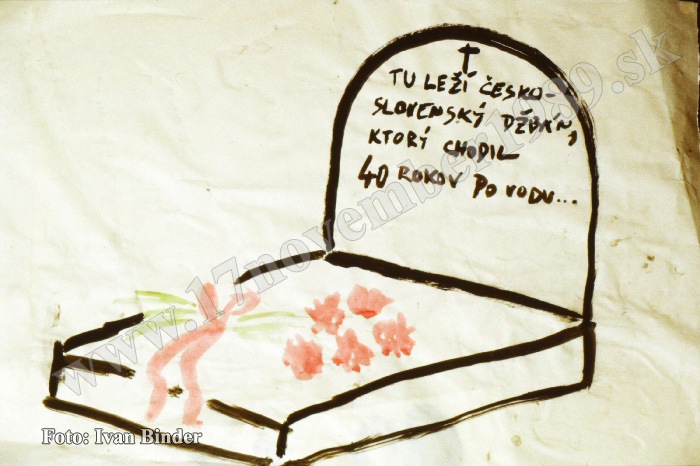 TU LEŽÍ ČESKO-
SLOVENSKÝ DŽBÁN,
KTORÝ CHODIL
40 ROKOV PO VODU...
www.17november1989.sk
Foto: Ivan Binder